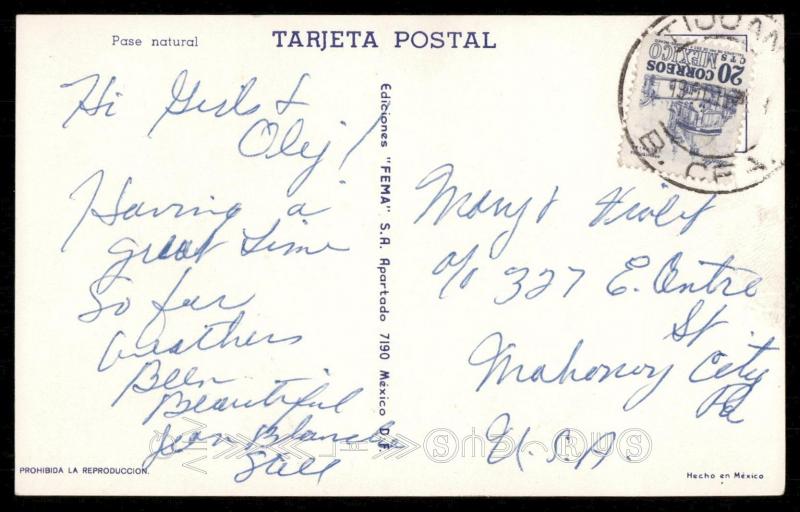 Pase natural
TARJETA POSTAL
Hi Girls &
Oley!
Having a
great time
So far
Weathers
Been
Beautiful
Jean Blanche
Still
PROHIBIDA LA REPRODUCCION.
Ediciones "FEMA" S.A. Apartado 7190 México D.F.
20 CORREOS
CTS. MEXICO
B. CFA.
Mary & Violet
c/o 327 E. Centre
St
Mahonoy City
Pa
U.S.A.
Hecho en México